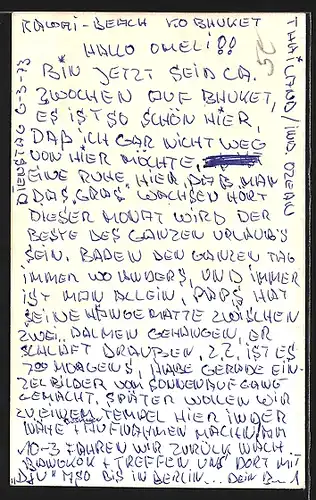 RAWAI - BEACH KO BHUKET
THAILAND / IND. OZEAN
DIENSTAG 6-3-73
HALLO OMELI!!
BIN JETZT SEID CA.
3 WOCHEN AUF BHUKET,
ES IST SO SCHÖN HIER,
DAß ICH GAR NICHT WEG
VON HIER MÖCHTE.
EINE RUHE HIER, DAß MAN
DAS GRAS WACHSEN HÖRT
DIESER MONAT WIRD DER
BESTE DES GANZEN URLAUBS
SEIN. BADEN DEN GANZEN TAG
IMMER WO ANDERS, UND IMMER
IST MAN ALLEIN, PAPS HAT
SEINE HÄNGEMATTE ZWISCHEN
ZWEI PALMEN GEHANGEN, ER
SCHLÄFT DRAUßEN, Z.Z. IST ES
7 00 MORGENS, HABE GERADE EIN-
ZELBILDER VOM SONNENAUFGANG
GEMACHT. SPÄTER WOLLEN WIR
ZU EINEM TEMPEL HIER IN DER
NÄHE + AUFNAHMEN MACHEN, AM
10-3 FAHREN WIR ZURÜCK NACH
BANGKOK + TREFFEN UNS DORT MIT
BIS IN BERLIN... DEIN